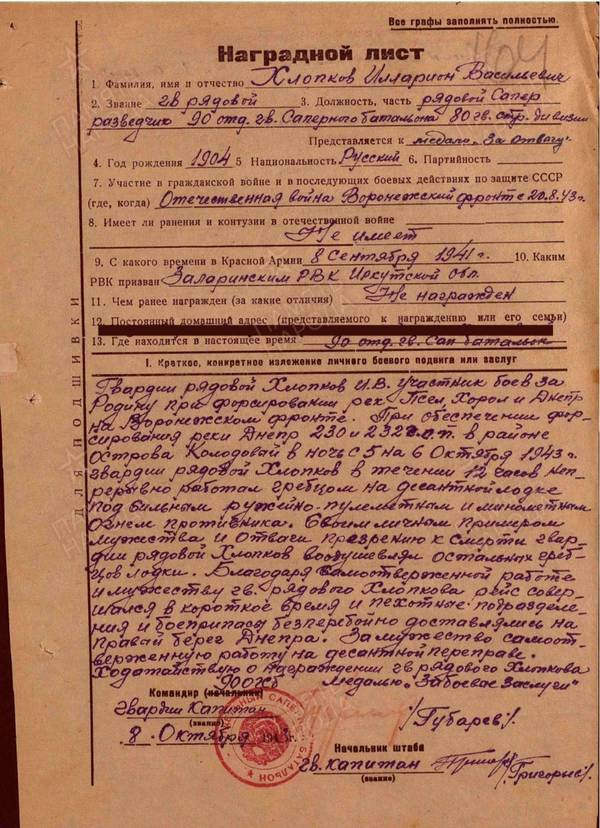 Все графы заполнять полностью.
404
Наградной лист
1. Фамилия, имя и отчество Хлопков Илларион Васильевич
2. Звание гв рядовой 3. Должность, часть рядовой Сапер
разведчик 90 отд. гв. Саперного батальона 80 гв. стр. дивизии
Представляется к медали "За отвагу"
4. Год рождения 1904 5 Национальность Русский 6. Партийность
7. Участие в гражданской войне и в последующих боевых действиях по защите СССР
(где, когда) Отечественная война Воронежский фронт с 20.8.43г.
8. Имеет ли ранения и контузии в отечественной войне
Не имеет
9. С какого времени в Красной Армии 8 Сентября 1941г. 10. Каким
РВК призван Заларинским РВК Иркутской обл.
11. Чем ранее награжден (за какие отличия) Не награжден
12. Постоянный домашний адрес (представляемого к награждению или его семьи)
13. Где находится в настоящее время 90 отд. гв. Сап батальон
I. Краткое, конкретное изложение личного боевого подвига или заслуг
Гвардии рядовой Хлопков И.В. участник боев за
Родину при форсировании рек Псел, Хорол и Днепр
на Воронежском фронте. При обеспечении фор-
сирования реки Днепр 230 и 232 г.с.п. в районе
Острова Колодовой в ночь с 5 на 6 Октября 1943г
гвардии рядовой Хлопков в течении 12 часов неп-
рерывно работал гребцом на десантной лодке
под сильным ружейно-пулеметным и минометным
огнем противника. Своим личным примером
мужества и Отваги презрению к смерти гвар-
дии рядовой Хлопков воодушевлял остальных греб-
цов лодки. Благодаря самоотверженной работе
и мужеству гв. рядового Хлопкова рейс совер-
шался в короткое время и пехотные подразделе-
ния и боеприпасы безперебойно доставлялись на
правай берег Днепра. За мужество самоот-
верженную работу на десантной переправе.
Ходатайствую о награждении гв рядового Хлопкова
Медалью "За боевые заслуги"
Командир (начальник)
гвардии Капитан /Губарев/.
(звание)
8. Октября 1943г.
Начальник штаба
гв. капитан /Григорьев/.
(звание)
ДЛЯ ПОДШИВКИ